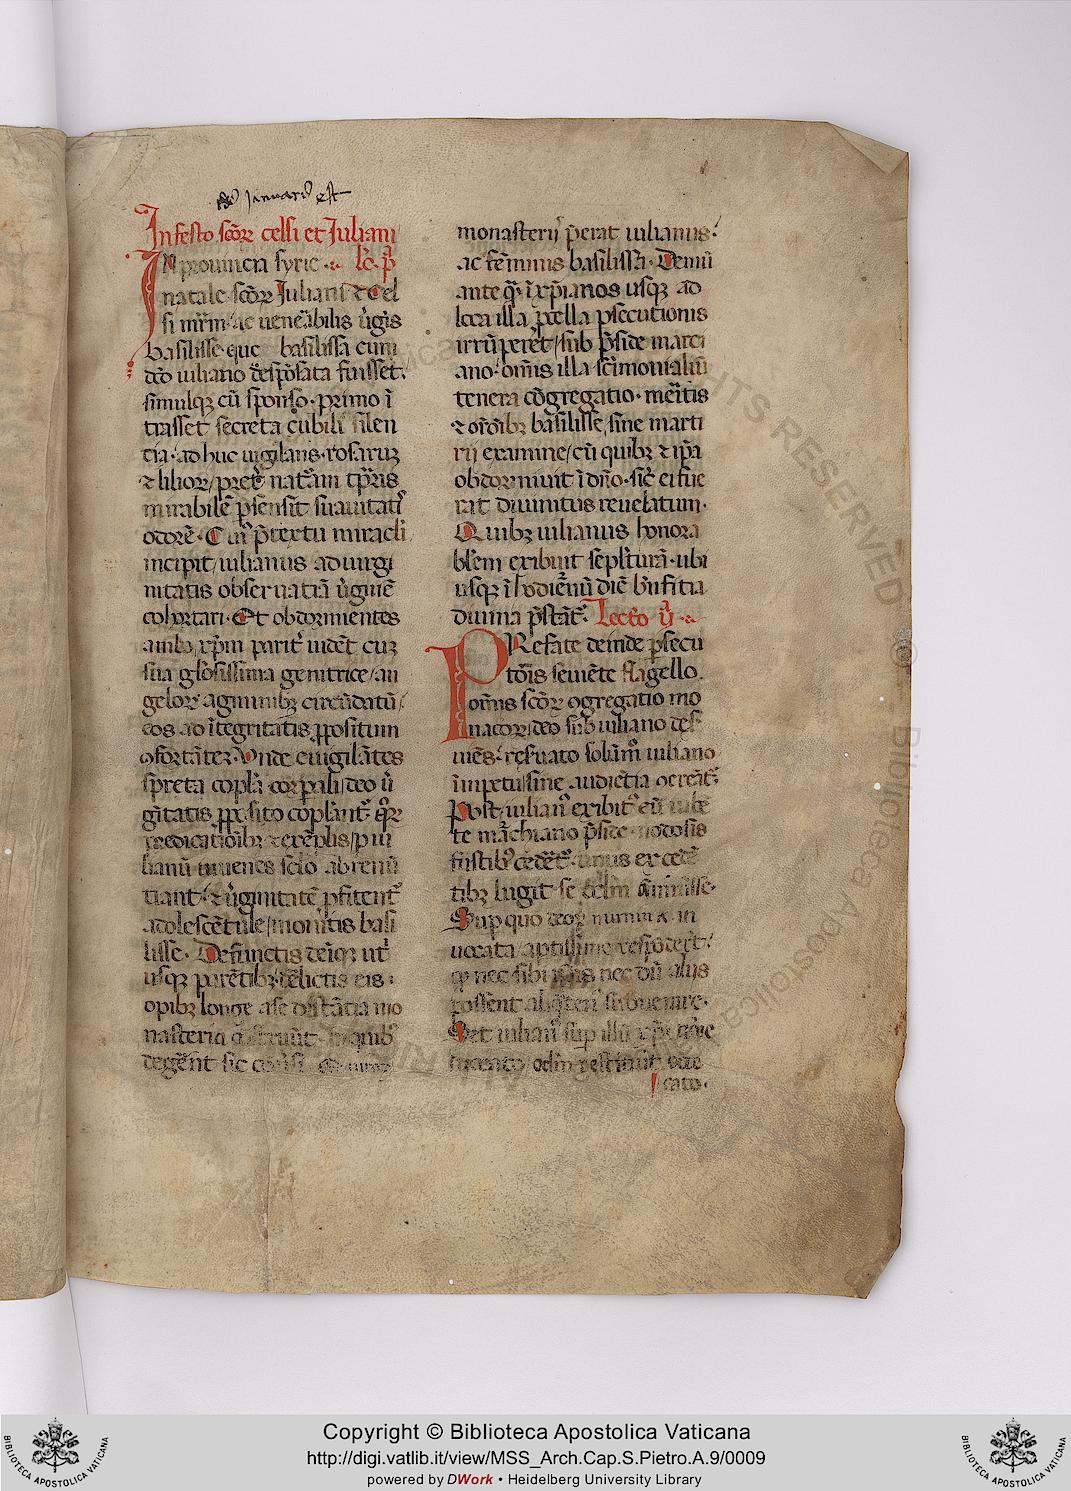 Januarii est
In festo scōrꝝ celsi et Juliani
IN prouincia syrie · lc̄. p̄
natale scōrꝝ Juliani ⁊ Cel
si mr̄m ac uenēabilis ūgis
basilisse que basilissa cum
dcō iuliano despōsata fuisset.
simulqꝫ cū sponso · primo ī
trasset secreta cubili silen
cia · ad huc uigilans · rosaruꝫ
⁊ liliorꝝ pret̄ natāam tp̄ris
mirabilē p̄sensit suauitatꝭ
odorē · Cū p̄textu miracli
incipit iulianus ad uirgi
nitatis obseruatiā ūginē
cohortari · Et obdormientes
ambo xp̄m parit̄ uidēt cuꝫ
sua glōsissima genitrice an
gelorꝝ agminibꝫ circūdatū
eos ad ītegritatis ꝓpositum
ꝯfortātez · Vnde euigilātes
spreta copl̄a corꝑali deo ū
gītatis ꝓposito
p̄dicatiōibꝫ ⁊ exēplis p iu
lianū iuuenes sclo abrenū
tiant · ⁊ ūginitatē ꝓfitent̄
adolescētule monitis basi
lisse · Defunctis deīqꝫ utꝭ
usqꝫ parētibꝫ relictis eis
opibꝫ longe a se distātia mo
nasteria ꝯstruūt · in quibꝰ
degēnt sic
monasterij p̄erat iulianus ·
ac feminis basilissa · Uerum
ante qꝫ ī xp̄ianos usqꝫ ad
loca illa ꝓcella ꝑsecutionis
irrūperet sub p̄side marci
ano · omīs illa scīmonialiū
tenera cōgregatio · meritis
⁊ orōibꝫ basilisse sine marti
rij examine cū quibꝫ ⁊ ip̄a
obdormiuit ī dn̄o · sic̄ ei fue
rat diuinitus reuelatum ·
Quibꝫ iulianus honora
blem exibuit sepl̄turā · ubi
usqꝫ ī hodiernū diē bn̄fitia
diuina p̄stāt̄ · Lectō ij ·
PRefate deinde ꝑsecu
tōis seuiēte flagello
omīs scōrꝝ ꝯgregatio mo
nacorꝝ deo sub iuliano des
uiēs · reseruato solūm iuliano
īpetu sine audiētia
Post iulianꝰ exibit̄ eū iubē
te marchiano p̄side nodosis
fustibꝰ cedēt̄ · unus ex cedē
tibꝫ lugit se oclm āmisisse ·
Sup quo deorꝝ numina in
uocata aptissime respōdet̄
qꝫ nec sibi ipsis nec dū alijs
possent aliqten̄ subuenire ·
Set iulianꝰ sup illū xp̄i nōīe
inuocato oclm restituit ceca
cato ·
Copyright © Biblioteca Apostolica Vaticana
http://digi.vatlib.it/view/MSS_Arch.Cap.S.Pietro.A.9/0009
powered by DWork • Heidelberg University Library